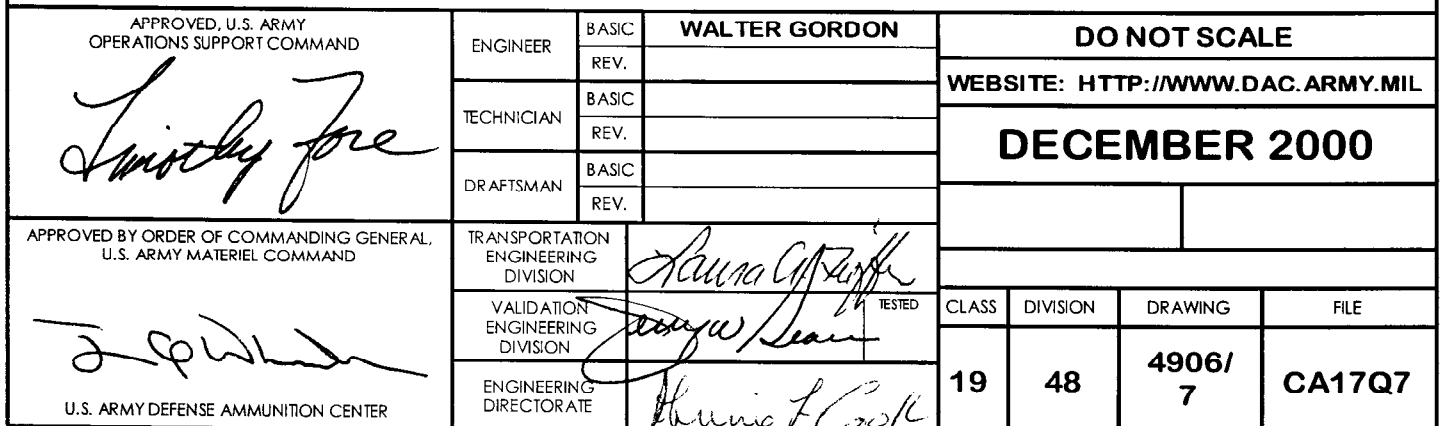 APPROVED, U.S. ARMY
OPERATIONS SUPPORT COMMAND
Timothy Fore
APPROVED BY ORDER OF COMMANDING GENERAL,
U.S. ARMY MATERIEL COMMAND
U.S. ARMY DEFENSE AMMUNITION CENTER
ENGINEER
BASIC
WALTER GORDON
REV.
TECHNICIAN
BASIC
REV.
DRAFTSMAN
BASIC
REV.
TRANSPORTATION
ENGINEERING
DIVISION
Laura A
VALIDATION
ENGINEERING
DIVISION
Jerry W
TESTED
ENGINEERING
DIRECTORATE
F Cook
DO NOT SCALE
WEBSITE: HTTP://WWW.DAC.ARMY.MIL
DECEMBER 2000
CLASS DIVISION DRAWING FILE
19 48 4906/ CA17Q7
7